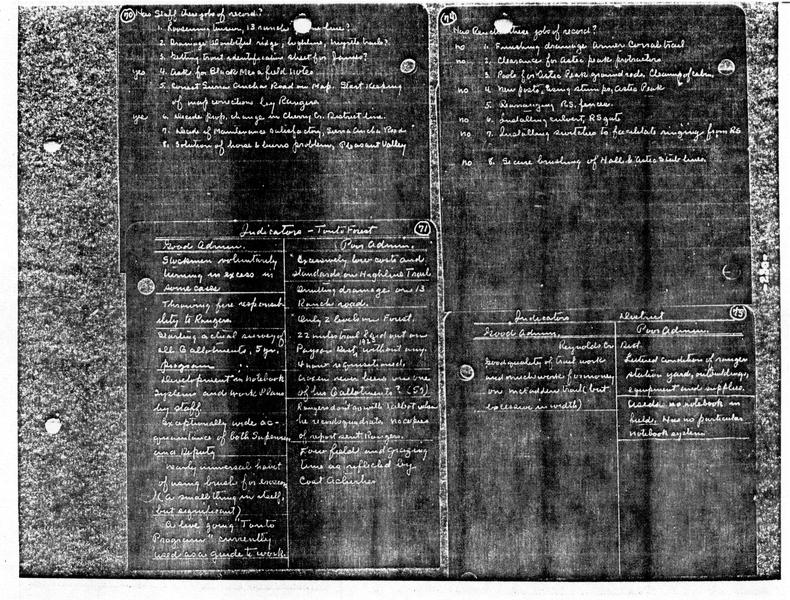 70
Has Staff these jobs of record?
1. Loosening tension, 13 ranch line?
2. Drainage Doubtful ridge, highline, myrtle trails?
3. Getting trout identification sheet for James?
yes 4. Ask for Black Mesa field notes
5. Correct Sierra Ancha Road on Map. Start keeping
of map corrections by Rangers
yes 6. Decide Prop. change in Cherry Cr. District line.
7. Decide if Maintenance satisfactory, Sierra Ancha Road
8. Solution of horse & burro problem, Pleasant Valley
71
Indicators - Tonto Forest
Good Admin.
Stockmen voluntarily
turning in excess in
some cases
Throwing fire responsi-
bility to Rangers.
Starting actual survey of
all G allotments, 5 yr.
program
Development in Notebook
systems and Work Plans
by staff.
Exceptionally wide ac-
quaintance of both Supervisor
and Deputy
Nearly universal habit
of using brush for erosion
(a small thing in itself,
but significant)
A live going "Tonto
Program" currently
used as a guide to work.
Poor Admin.
Excessively low costs and
standards on Highline Trail
Omitting drainage on 13
Ranch road.
Only 2 levels on Forest.
22 miles trail laid out on
Payson Dist, 1923 without any.
4 now requisitioned.
Croxen never been on one
of his G allotments? (5?)
Rangers don't go with Talbot when
he reviews quadrats No copies
of report sent Rangers.
Low field and grazing
time as reflected by
Cost Ac
74
Has Ranger these jobs of record?
no 1. Finishing drainage Armer Corral trail
no 2. Clearance for Aztec peak protractors
3. Poles for Aztec Peak ground rods, Cleanup of cabin
no 4. New posts, using stumps, Aztec Peak
5. Rearranging R.S. fences.
no 6. Installing culvert, RS gate
no 7. Installing switches to facilitate ringing from RS
no 8. Secure brushing of Hall & Aztec Stub lines
75
Indicators District
Reynolds Cr Dist.
Good Admin.
Good quality of trail work
and much work for money
on McFadden trail but
excessive in width)
Poor Admin.
Littered condition of ranger
station yards, outbuildings,
equipment and supplies.
Used no notebook in
field. Has no particular
notebook system